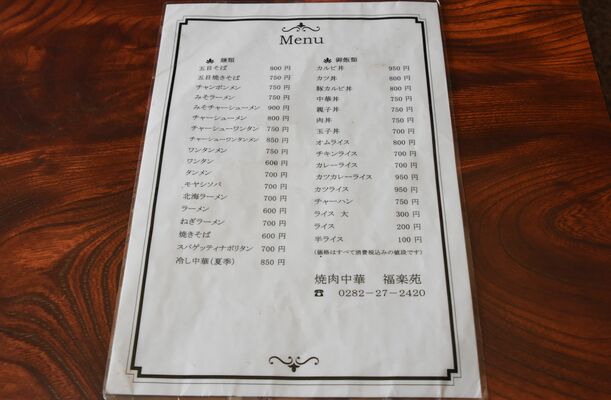 Menu
麺類
五目そば 800 円
五目焼きそば 750 円
チャンポンメン 750 円
みそラーメン 750 円
みそチャーシューメン 900 円
チャーシューメン 800 円
チャーシューワンタン 750 円
チャーシューワンタンメン 850 円
ワンタンメン 750 円
ワンタン 600 円
タンメン 700 円
モヤシソバ 700 円
北海ラーメン 700 円
ラーメン 600 円
ねぎラーメン 700 円
焼きそば 600 円
スパゲッティナポリタン 700 円
冷し中華(夏季) 850 円
御飯類
カルビ丼 950 円
カツ丼 800 円
豚カルビ丼 800 円
中華丼 750 円
親子丼 750 円
肉丼 750 円
玉子丼 700 円
オムライス 800 円
チキンライス 700 円
カレーライス 700 円
カツカレーライス 950 円
カツライス 950 円
チャーハン 750 円
ライス 大 300 円
ライス 200 円
半ライス 100 円
(価格はすべて消費税込みの値段です)
焼肉中華 福楽苑
☎ 0282-27-2420